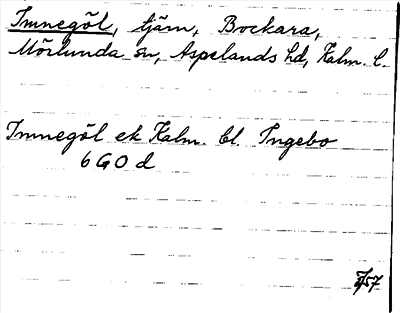 Imnegöl, tjärn, Bockara,
Mörlunda sn, Aspelands hd, Kalm. l.
Imnegöl ek Kalm. bl. Ingebo
6 G O d